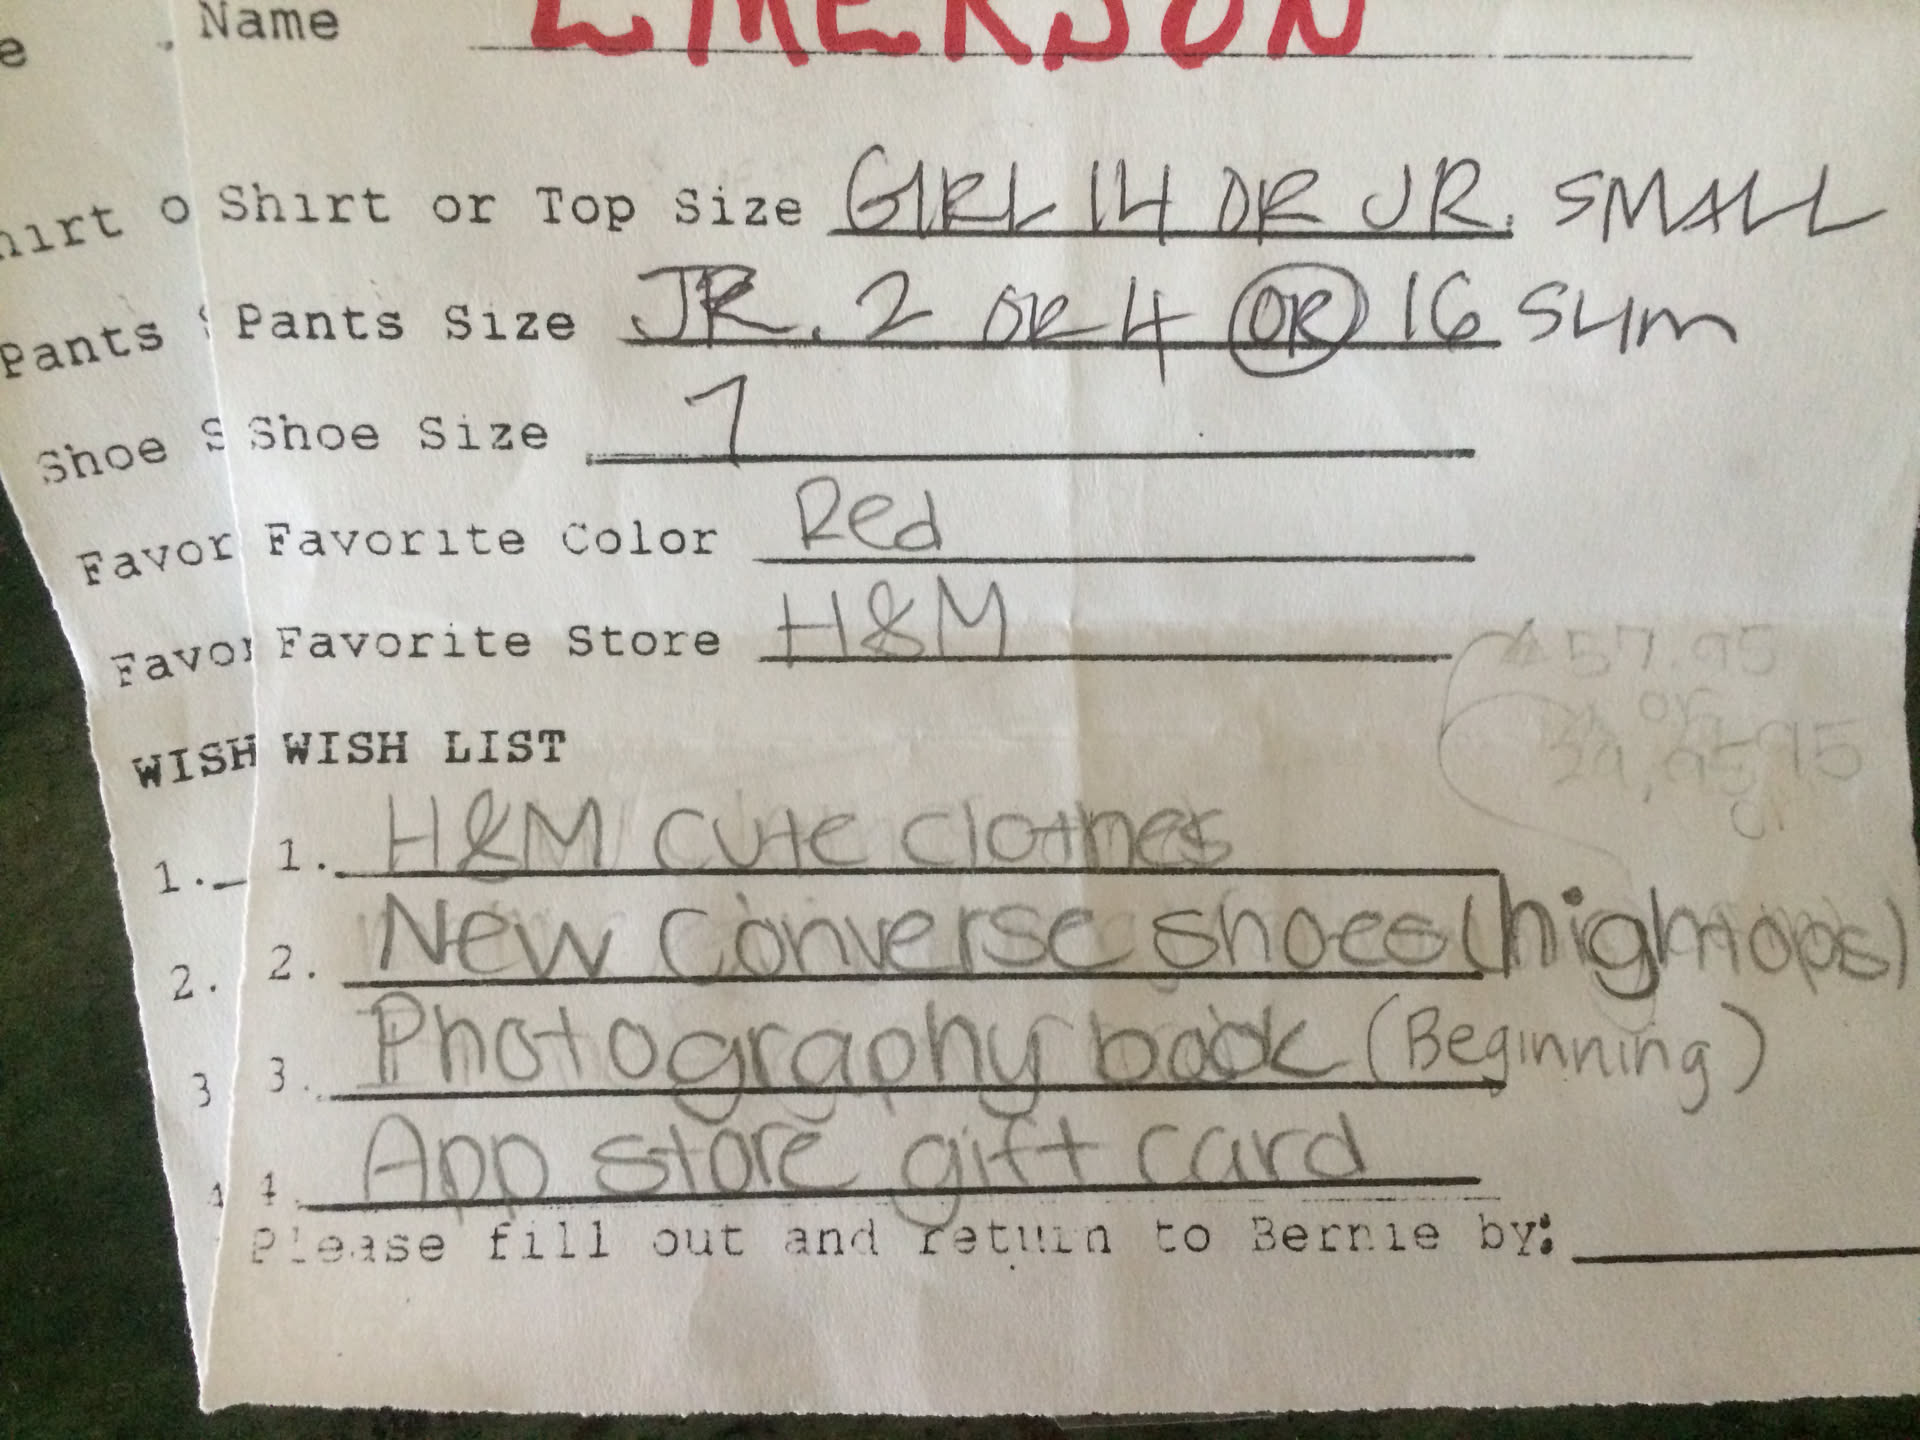 Name EMERSON
Shirt or Top Size GIRL 14 OR JR. SMALL
Pants Size JR. 2 OR 4 OR 16 SLIM
Shoe Size 7
Favorite Color Red
Favorite Store H&M
57.95
or
WISH LIST
1. H&M cute clothes
2. New Converse shoes (hightops)
3. Photography book (Beginning)
4. App store gift card
Please fill out and return to Bernie by:
e
hirt o
Pants S
Shoe S
Favor
Favor
WISH
1.
2.
3
4